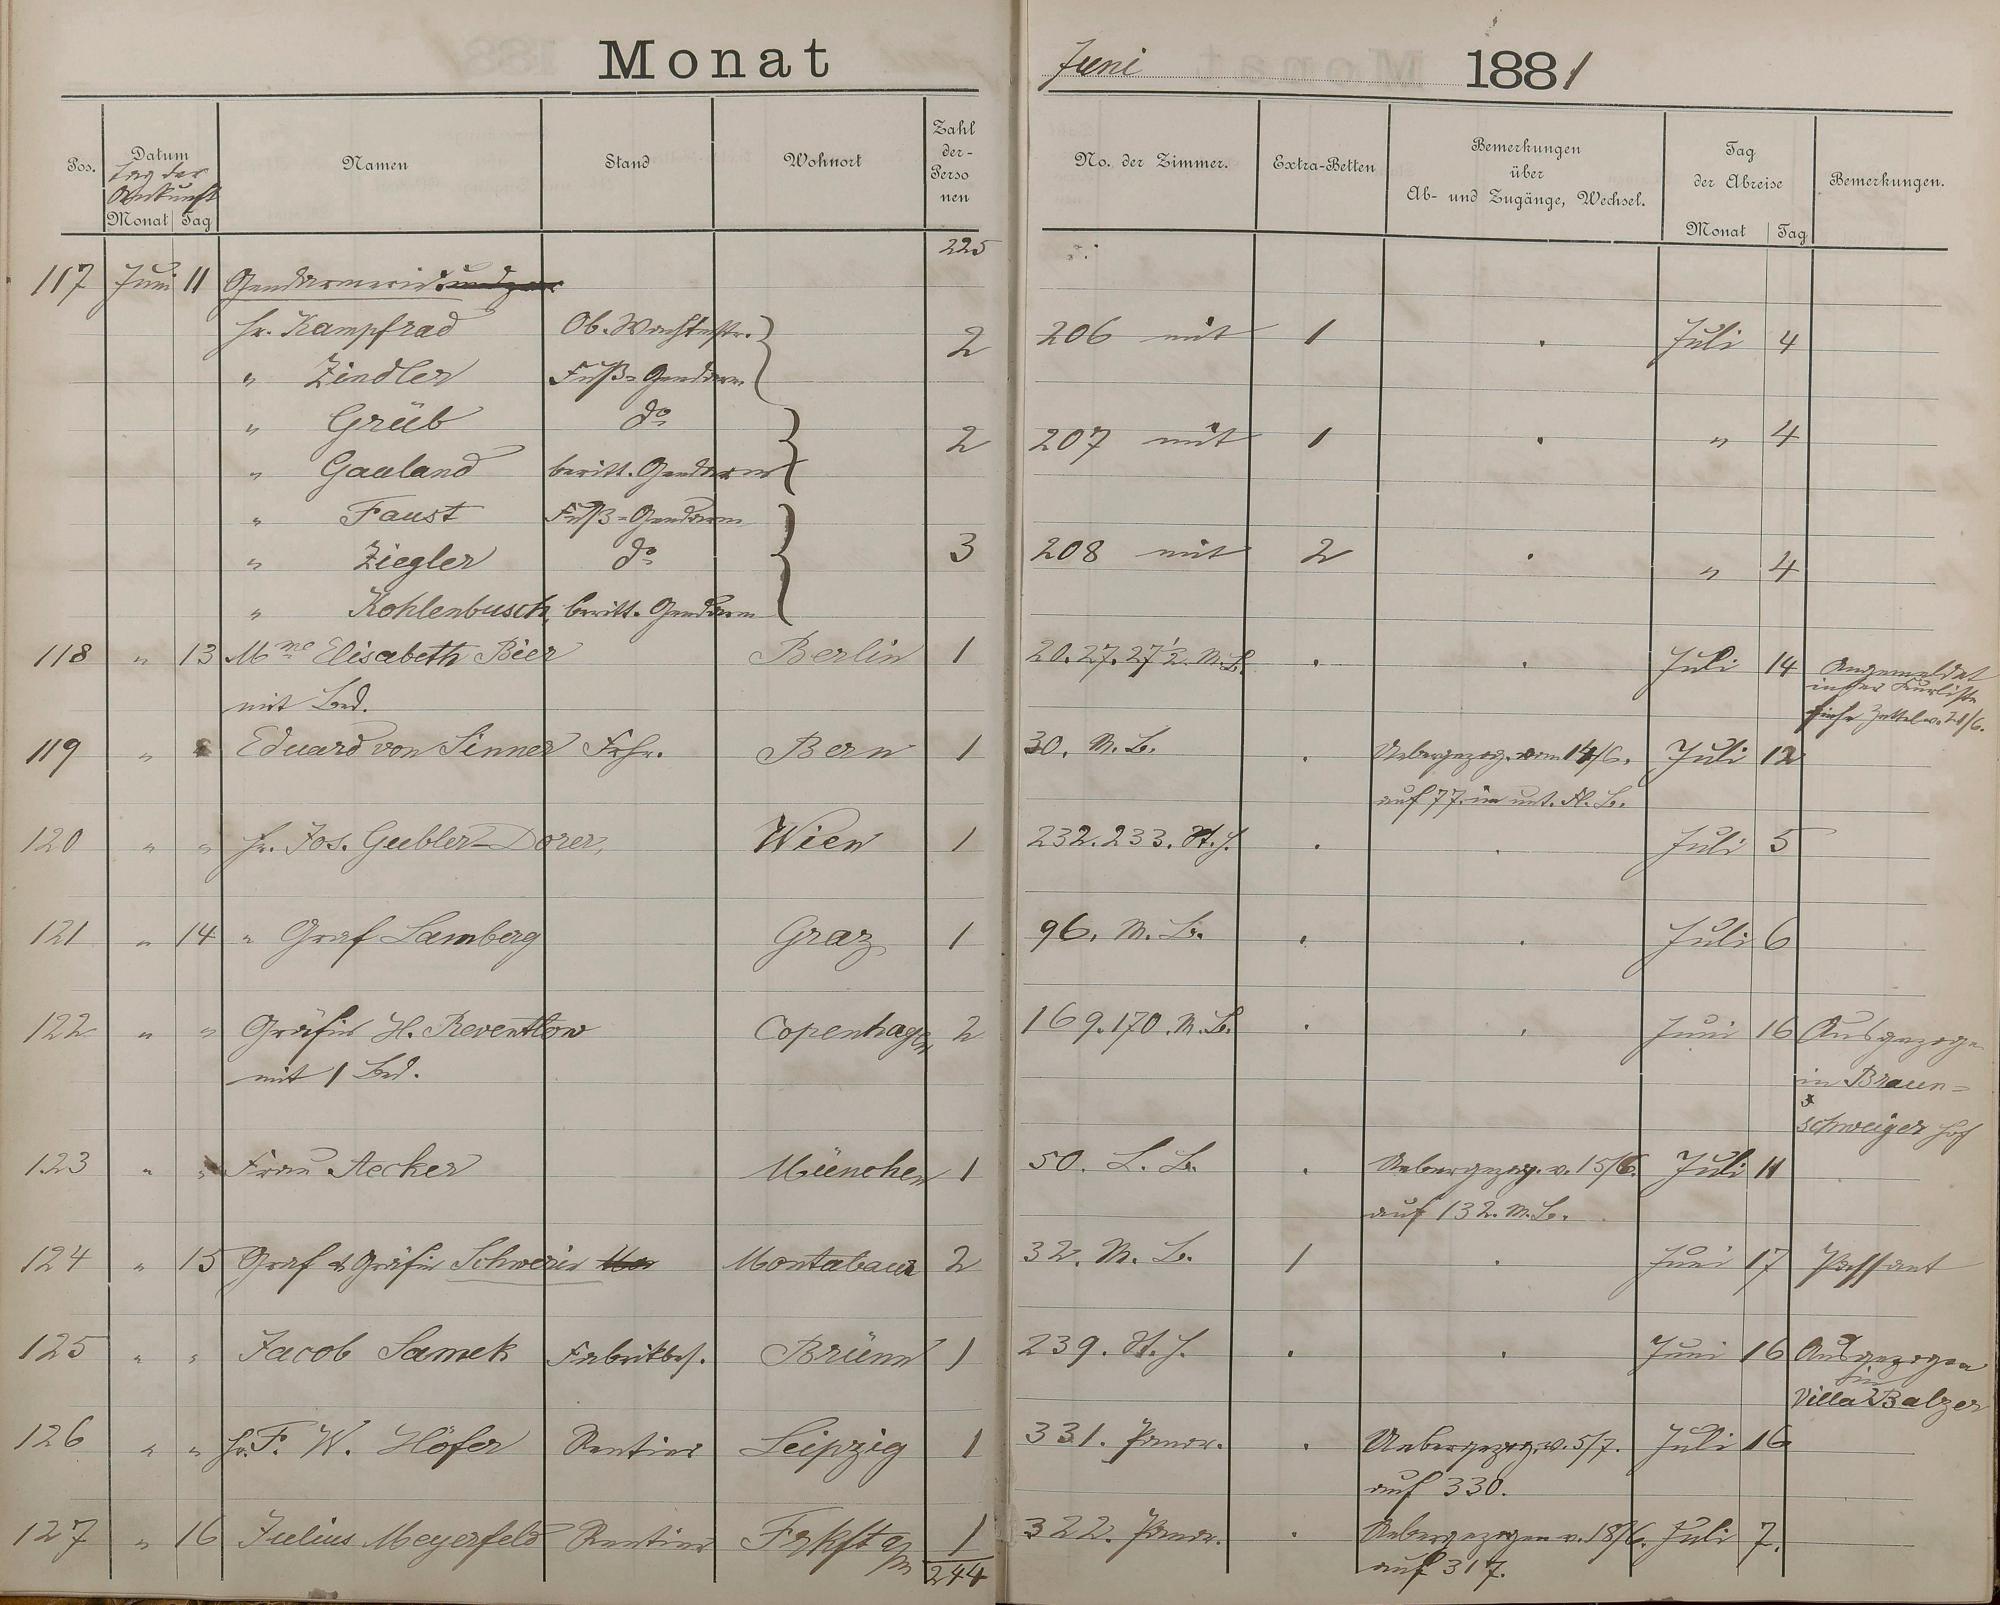 Monat Juni 1881
Pos. Datum Tag der Ankunft Monat Tag Namen Stand Wohnort Zahl der Personen No. der Zimmer. Extra-Betten Bemerkungen über Ab- und Zugänge, Wechsel. Tag der Abreise Monat Tag Bemerkungen.
225
117 Juni 11 Gendarmerie
Hr. Kampfrad Ob. Wachtmstr. 2 206 mit 1 . Juli 4
" Zindler Fuß-Gendarm
" Grüb do 2 207 mit 1 . " 4
" Gauland beritt. Gendarm
" Faust Fuß-Gendarm
" Ziegler do 3 208 mit 2 . " 4
" Kohlenbusch, beritt. Gendarm
118 " 13 Mme Elisabeth Bier Berlin 1 20. 27. 27 1/2. N. B. . . Juli 14 Angemeldet
in der Kurliste
mit Bed. siehe Zettel v. 28/6.
119 " " Eduard von Sinner Frhr. Bern 1 30. N. B. . Uebergezog. vom 14/6. Juli 12
auf 77. im unt. A. B.
120 " " Hr. Jos. Guebler-Dorer, Wien 1 232. 233. St. H. . . Juli 5
121 " 14 " Graf Lamberg Graz 1 96. N. B. . . Juli 6
122 " " Gräfin H. Reventlow Copenhagen 2 169. 170. N. B. . . Juni 16 Ausgezogen
mit 1 Bed. in Braun=
schweiger Hof
123 " " Frau Aecker München 1 50. L. B. . Uebergezog. v. 15/6. Juli 11
auf 132. N. B.
124 " 15 Graf & Gräfin Schwerin Montabaur 2 32. N. B. 1 . Juni 17 Passant
125 " " Jacob Samek Fabrikbes. Brünn 1 239. St. H. . . Juni 16 Ausgezogen
in
Villa Balzer
126 " " Hr. F. W. Höfer Rentier Leipzig 1 331. Panor. . Uebergezog. v. 5/7. Juli 16
auf 330.
127 " 16 Julius Meyerfeld Rentier Frkft a/m 1 322. Panor. . Uebergezogen v. 18/6. Juli 7.
auf 317.
244